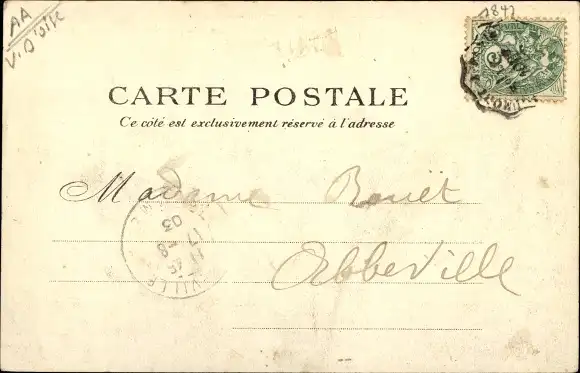 AA
V. D'OISE
1842
CARTE POSTALE
Ce côté est exclusivement réservé à l'adresse
Madame Bouët
Abbeville
17 -8
03
VILLE